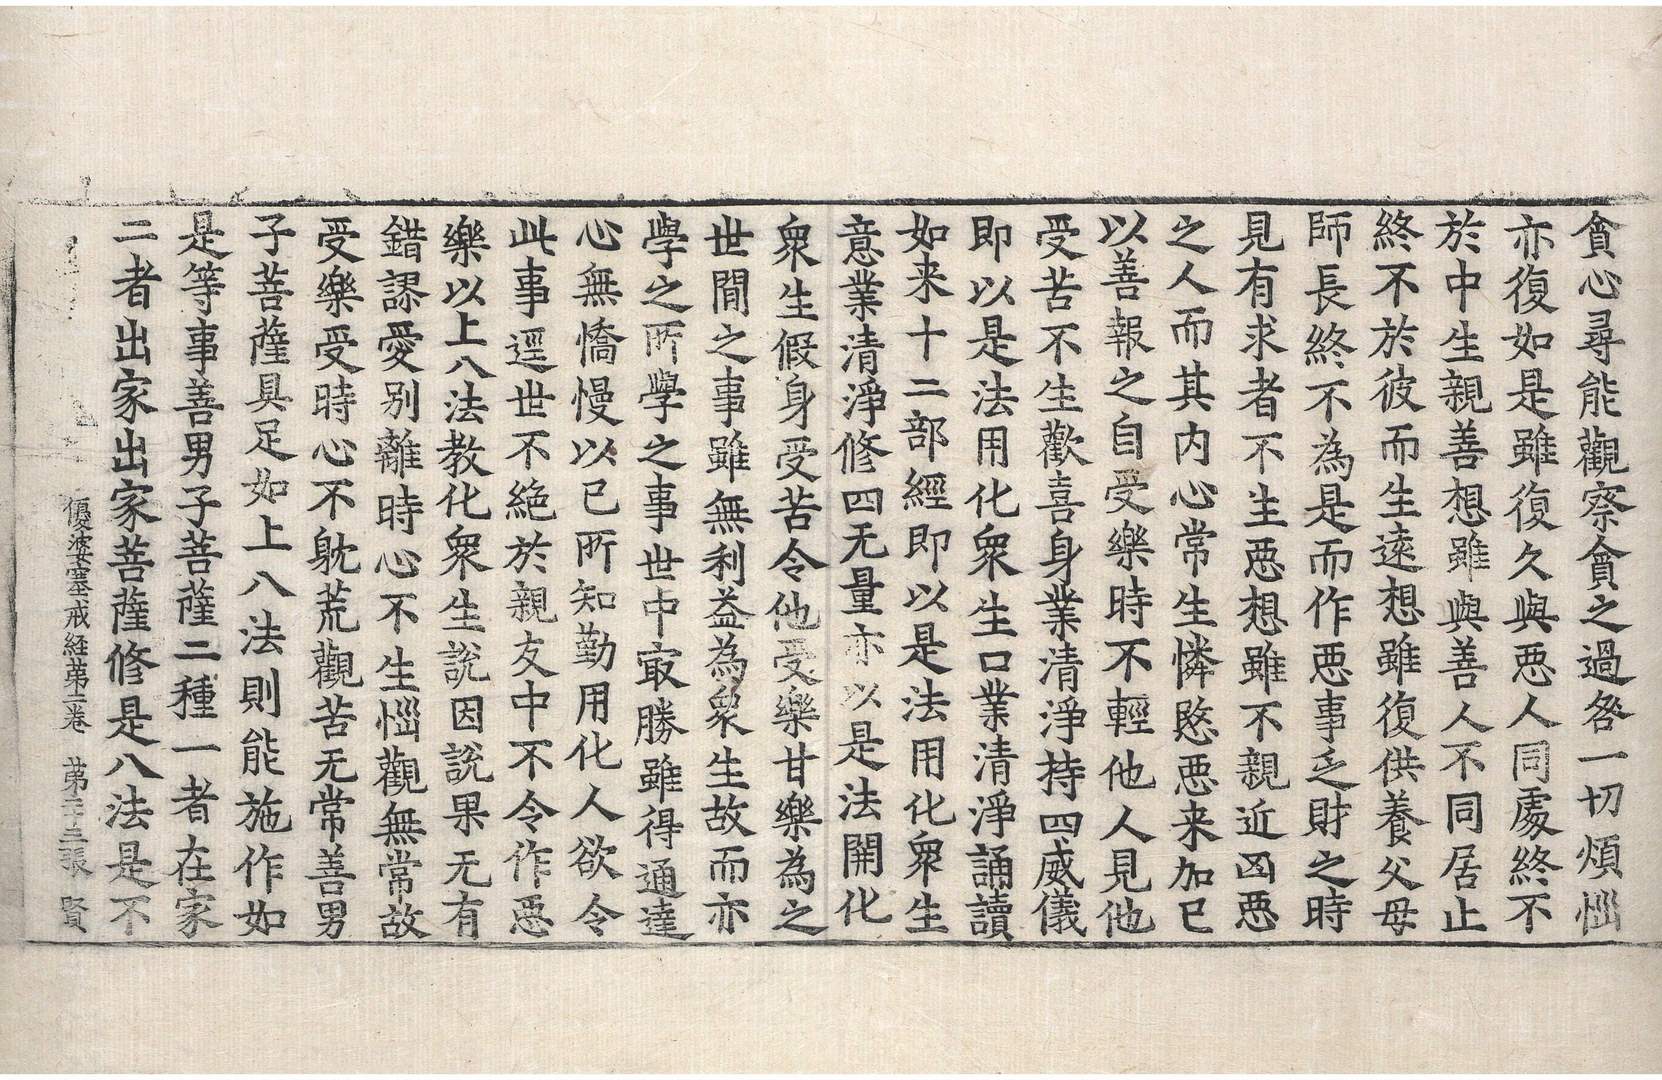 貪心尋能觀察貪之過咎一切煩惱
亦復如是雖復久與惡人同處終不
於中生親善想雖與善人不同居止
終不於彼而生遠想雖復供養父母
師長終不為是而作惡事乏財之時
見有求者不生惡想雖不親近凶惡
之人而其内心常生憐愍惡来加已
以善報之自受樂時不輕他人見他
受苦不生歡喜身業清淨持四威儀
即以是法用化衆生口業清淨誦讀
如来十二部經即以是法用化衆生
意業清淨修四无量亦以是法開化
衆生假身受苦令他受樂甘樂為之
世閒之事雖無利益為衆生故而亦
學之所學之事世中㝡勝雖得通達
心無憍慢以己所知勤用化人欲令
此事逕世不絶於親友中不令作惡
樂以上八法教化衆生說因說果无有
錯謬愛别離時心不生惱觀無常故
受樂受時心不躭荒觀苦无常善男
子菩薩具足如上八法則能施作如
是等事善男子菩薩二種一者在家
二者出家出家菩薩修是八法是不
優婆塞戒経苐二卷　苐二十三張　賢